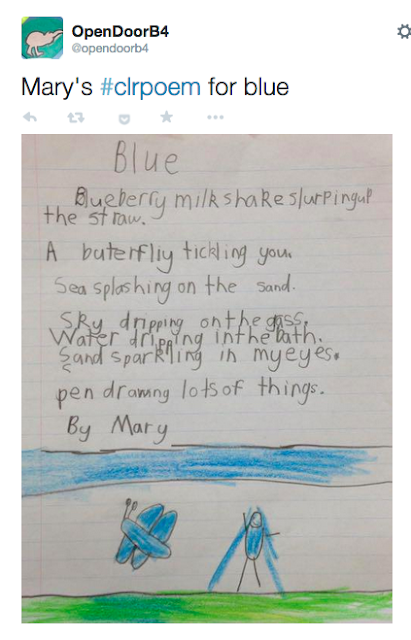 OpenDoorB4
@opendoorb4
Mary's #clrpoem for blue
Blue
Blueberry milkshake slurpingup
the straw.
A buterfliy tickling you.
Sea splashing on the sand.
Sky dripping on the gass.
Water dripping in the bath.
Sand sparkling in my eyes.
pen drawing lots of things.
By Mary